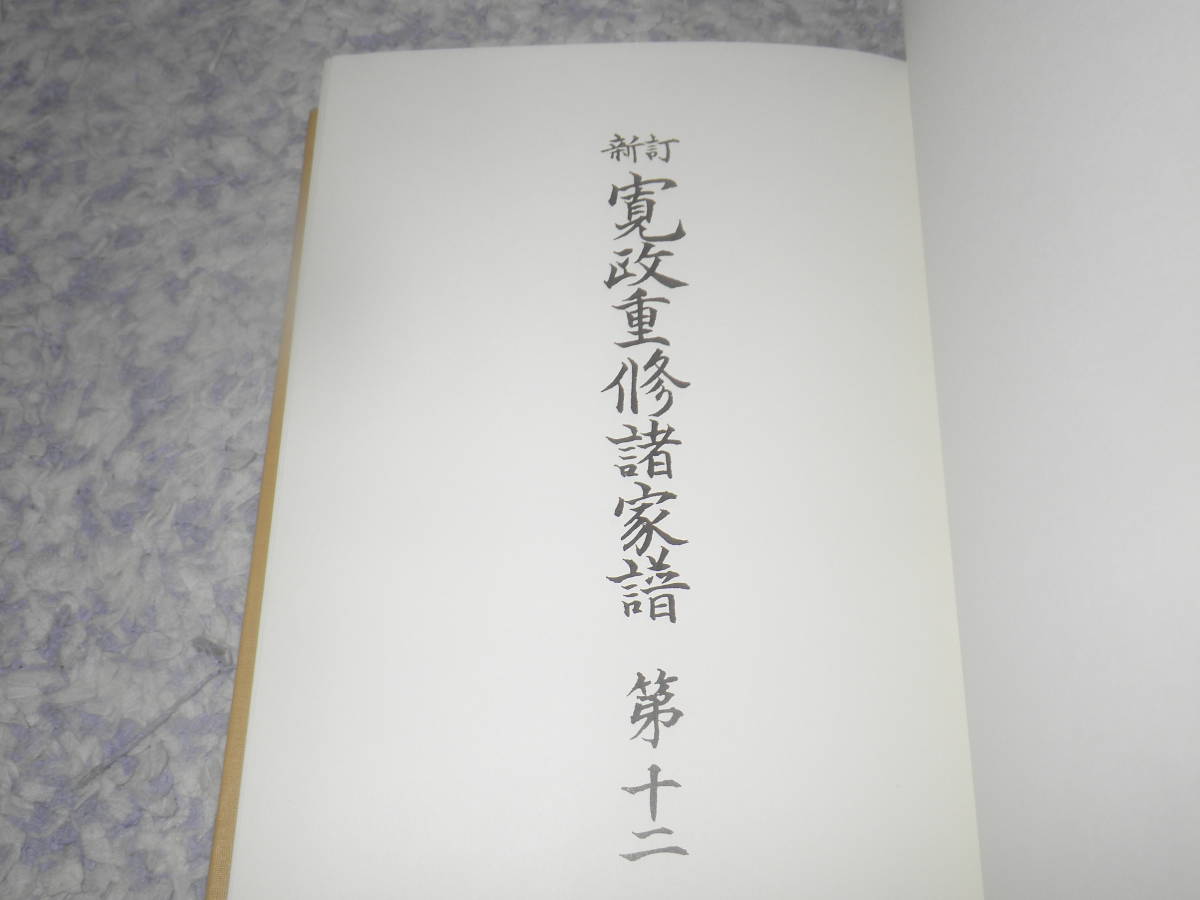 新訂
寛政重修諸家譜 第十二